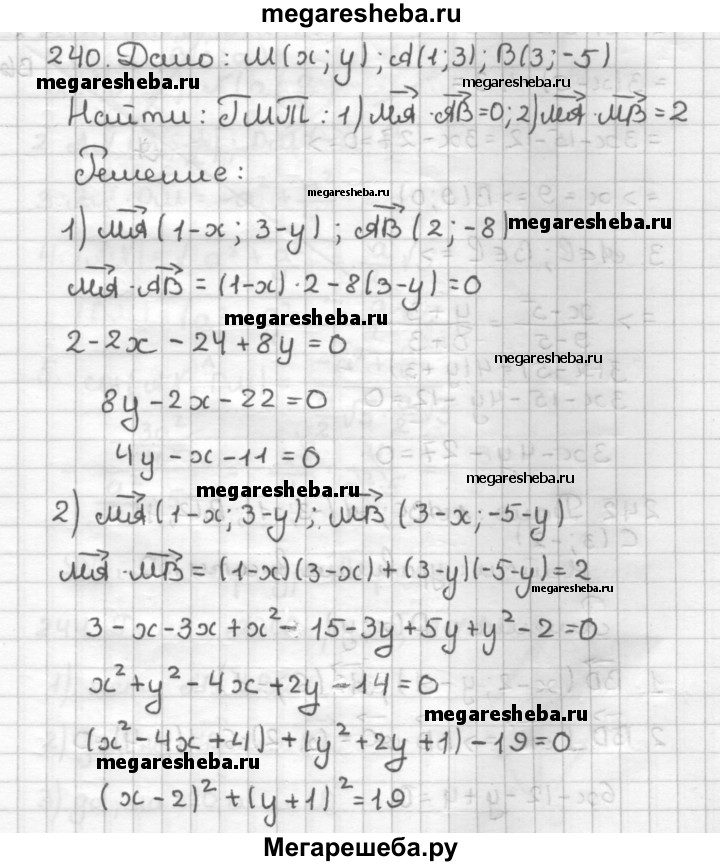 megaresheba.ru
240. Дано: M(x; y); A(1; 3); B(3; -5)
megaresheba.ru
megaresheba.ru
Найти: ГМТ: 1) MA · AB = 0; 2) MA · MB = 2
Решение:
megaresheba.ru
1) MA (1-x; 3-y); AB (2; -8) megaresheba.ru
MA · AB = (1-x) · 2 - 8(3-y) = 0
megaresheba.ru
2 - 2x - 24 + 8y = 0
megaresheba.ru
8y - 2x - 22 = 0
4y - x - 11 = 0
megaresheba.ru
megaresheba.ru
2) MA (1-x; 3-y); MB (3-x; -5-y)
MA · MB = (1-x)(3-x) + (3-y)(-5-y) = 2
megaresheba.ru
3 - x - 3x + x² - 15 - 3y + 5y + y² - 2 = 0
x² + y² - 4x + 2y - 14 = 0
megaresheba.ru
(x² - 4x + 4) + (y² + 2y + 1) - 19 = 0
megaresheba.ru
(x - 2)² + (y + 1)² = 19
Мегарешеба.ру